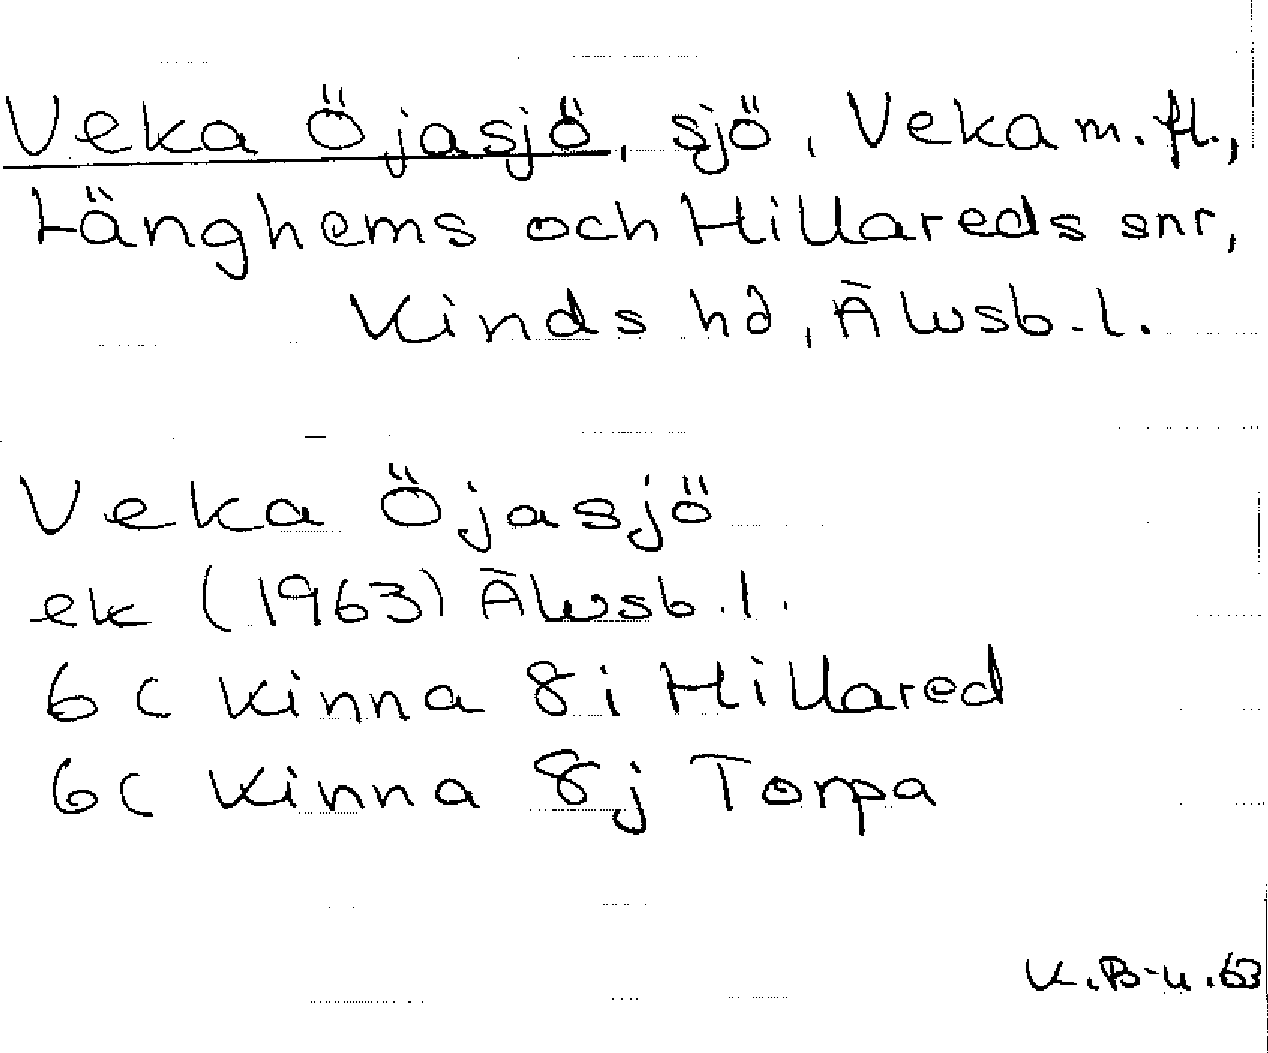 Veka Öjasjö, sjö, Veka m.fl.,
Länghems och Hillareds snr,
Kinds hd, Älvsb.l.
Veka Öjasjö
ek (1963) Älvsb.l.
6C Kinna 8i Hillared
6C Kinna 8j Torpa
K.B-u.63